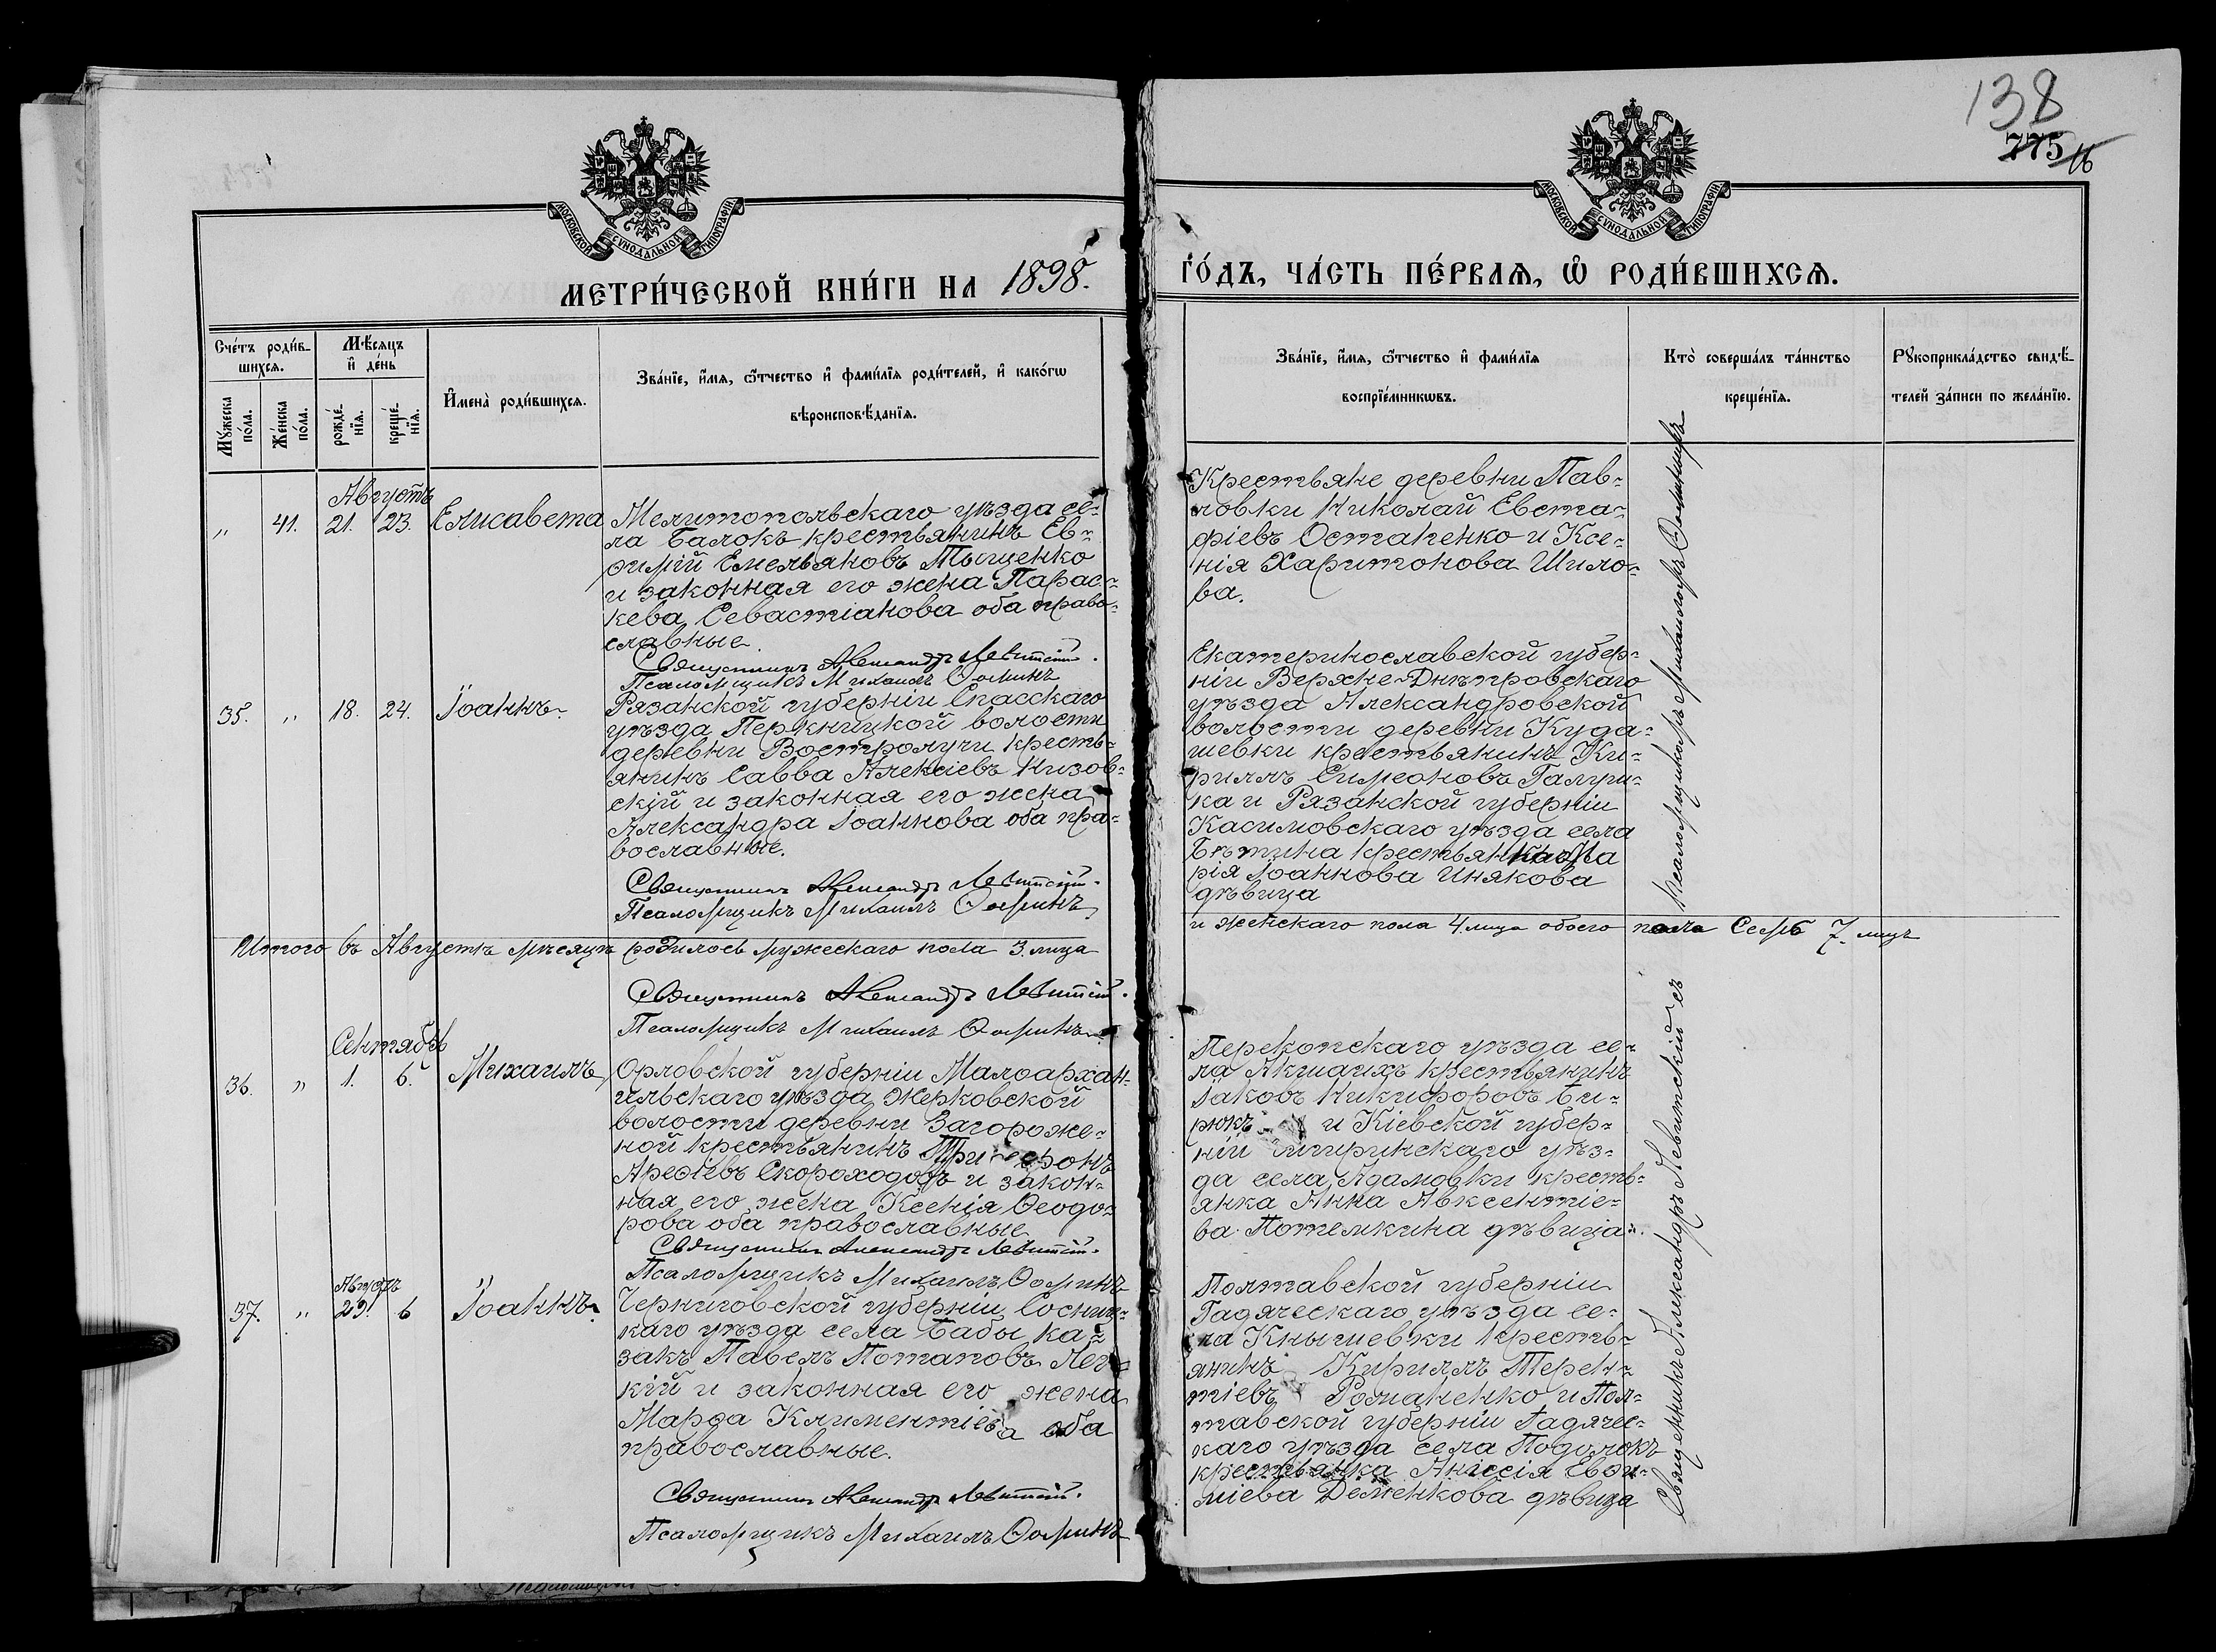 138
775
16
МОСКОВСКОЙ СУНОДАЛЬНОЙ ТИПОГРАФІИ
МОСКОВСКОЙ СУНОДАЛЬНОЙ ТИПОГРАФІИ
МЕТРИ́ЧЕСКОЙ КНИ́ГИ НА 1898. ГО́ДЪ, ЧА́СТЬ ПЕ́РВАѦ, Ѡ РОДИ́ВШИХСѦ.
Сче́тъ роди́в-
шихсѧ.
Мѣ́сѧцъ
и҆ де́нь
Мꙋжеска
по́ла.
Же́нска
по́ла.
рожде́-
нїѧ.
креще́-
нїѧ.
И҆мена̀ роди́вшихсѧ.
Зва́нїе, и҆́мѧ, ѻ҆́тчество и҆ фами́лїѧ роди́телей, и҆ како́гѡ
вѣроисповѣ́данїѧ.
Зва́нїе, и҆́мѧ, ѻ҆́тчество и҆ фами́лїѧ
воспрїе́мникѡвъ.
Кто̀ соверша́лъ та́инство
креще́нїѧ.
Рꙋкоприкла́дство свидѣ́-
телей за́писи по жела́нїю.
Августъ
„ 41. 21. 23. Елисавета
Мелитопольскаго уѣзда се-
ла Балокъ крестьянинъ Ев-
ѳимій Емельяновъ Тыщенко
и законная его жена Парас-
кева Севастіанова оба право-
славные.
Священникъ Александръ Левитскій.
Псаломщикъ Михаилъ Ѳоминъ
Крестьяне деревни Пав-
ловки Николай Евста-
фіевъ Остапенко и Ксе-
нія Харитонова Шило-
ва.
35. „ 18. 24. Іоаннъ
Рязанской губерніи Спасскаго
уѣзда Перкницкой волости
деревни Востролучи кресть-
янинъ Савва Алексіевъ Низов-
скій и законная его жена
Александра Іоаннова оба пра-
вославные.
Священникъ Александръ Левитскій.
Псаломщикъ Михаилъ Ѳоминъ
Екатеринославской губер-
ніи Верхне-Днѣпровскаго
уѣзда Александровской
волости деревни Куда-
шевки крестьянинъ Ки-
риллъ Симеоновъ Галуш-
ка и Рязанской губерніи
Касимовскаго уѣзда села
Бѣтина крестьянка Ма
рія Іоаннова Инякова
дѣвица
Итого въ Августѣ мѣсяцѣ родилось мужескаго пола 3. лица
и женскаго пола 4. лица обоего пола Семь 7. лицъ
Священникъ Александръ Левитскій.
Псаломщикъ Михаилъ Ѳоминъ
Сентябрь
36. „ 1. 6. Михаилъ
Орловской губерніи Малоархан-
гильскаго уѣзда Жерковской
волости деревни Загороже-
ной крестьянинъ
Арефіевъ Скороходовъ и закон-
ная его жена Ксенія Ѳеодо-
рова оба православные
Священникъ Александръ Левитскій.
Псаломщикъ Михаилъ Ѳоминъ
Перекопскаго уѣзда се-
ла Акшаихъ крестьянинъ
Іаковъ Никифоровъ Би-
рюкъ и Кіевской губер-
ніи Чигиринскаго уѣз-
да села Адамовки кресть-
янка Анна Авксентіе-
ва Потемкина дѣвица.
Августъ
37. „ 29. 6 Іоаннъ
Черниговской губерніи Сосниц-
каго уѣзда села Бабы ка-
закъ Павелъ Потаповъ Лег-
кій и законная его жена
Марѳа Климентіева оба
православные.
Священникъ Александръ Левитскій.
Псаломщикъ Михаилъ Ѳоминъ
Полтавской губерніи
Гадяческаго уѣзда се-
ла Кнышевки кресть-
янинъ Кириллъ Терен-
тіевъ Романенко и Пол-
тавской губерніи Гадячес-
каго уѣзда села Подолокъ
крестьянка Анісія Евѳи-
міева Деменкова дѣвица
Священникъ Александръ Левитскій съ
псаломщикомъ Михаиломъ Ѳоминымъ